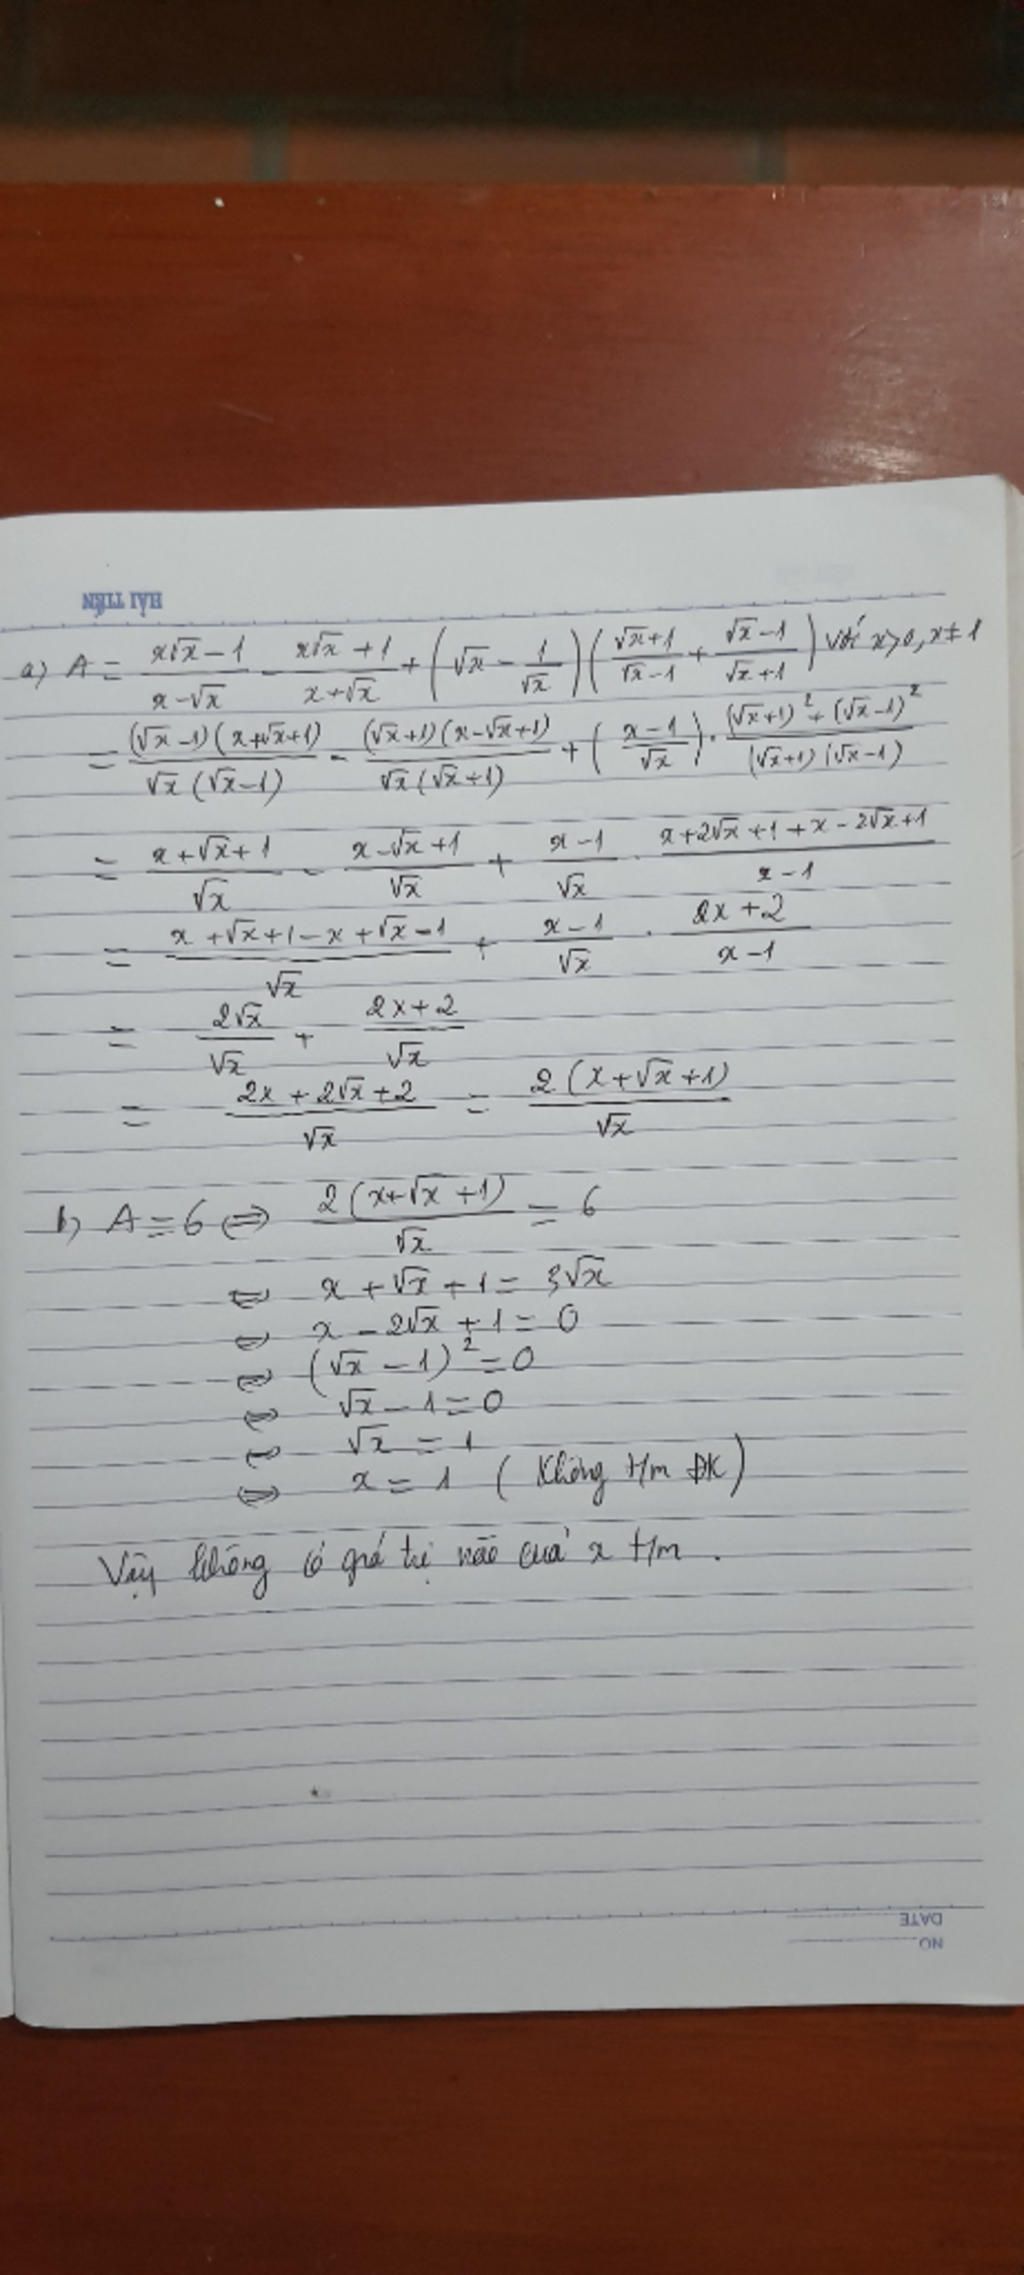 HẢI TIẾN
a) A = \frac{x\sqrt{x}-1}{x-\sqrt{x}} - \frac{x\sqrt{x}+1}{x+\sqrt{x}} + (\sqrt{x} - \frac{1}{\sqrt{x}})(\frac{\sqrt{x}+1}{\sqrt{x}-1} + \frac{\sqrt{x}-1}{\sqrt{x}+1}) với x>0, x≠1
= \frac{(\sqrt{x}-1)(x+\sqrt{x}+1)}{\sqrt{x}(\sqrt{x}-1)} - \frac{(\sqrt{x}+1)(x-\sqrt{x}+1)}{\sqrt{x}(\sqrt{x}+1)} + (\frac{x-1}{\sqrt{x}}) . \frac{(\sqrt{x}+1)^2+(\sqrt{x}-1)^2}{(\sqrt{x}+1)(\sqrt{x}-1)}
= \frac{x+\sqrt{x}+1}{\sqrt{x}} - \frac{x-\sqrt{x}+1}{\sqrt{x}} + \frac{x-1}{\sqrt{x}} . \frac{x+2\sqrt{x}+1+x-2\sqrt{x}+1}{x-1}
= \frac{x+\sqrt{x}+1-x+\sqrt{x}-1}{\sqrt{x}} + \frac{x-1}{\sqrt{x}} . \frac{2x+2}{x-1}
= \frac{2\sqrt{x}}{\sqrt{x}} + \frac{2x+2}{\sqrt{x}}
= \frac{2x+2\sqrt{x}+2}{\sqrt{x}} = \frac{2(x+\sqrt{x}+1)}{\sqrt{x}}
b) A = 6 ⇔ \frac{2(x+\sqrt{x}+1)}{\sqrt{x}} = 6
⇔ x + \sqrt{x} + 1 = 3\sqrt{x}
⇔ x - 2\sqrt{x} + 1 = 0
⇔ (\sqrt{x} - 1)^2 = 0
⇔ \sqrt{x} - 1 = 0
⇔ \sqrt{x} = 1
⇔ x = 1 (Không t/m ĐK)
Vậy không có giá trị nào của x t/m.
DATE
NO